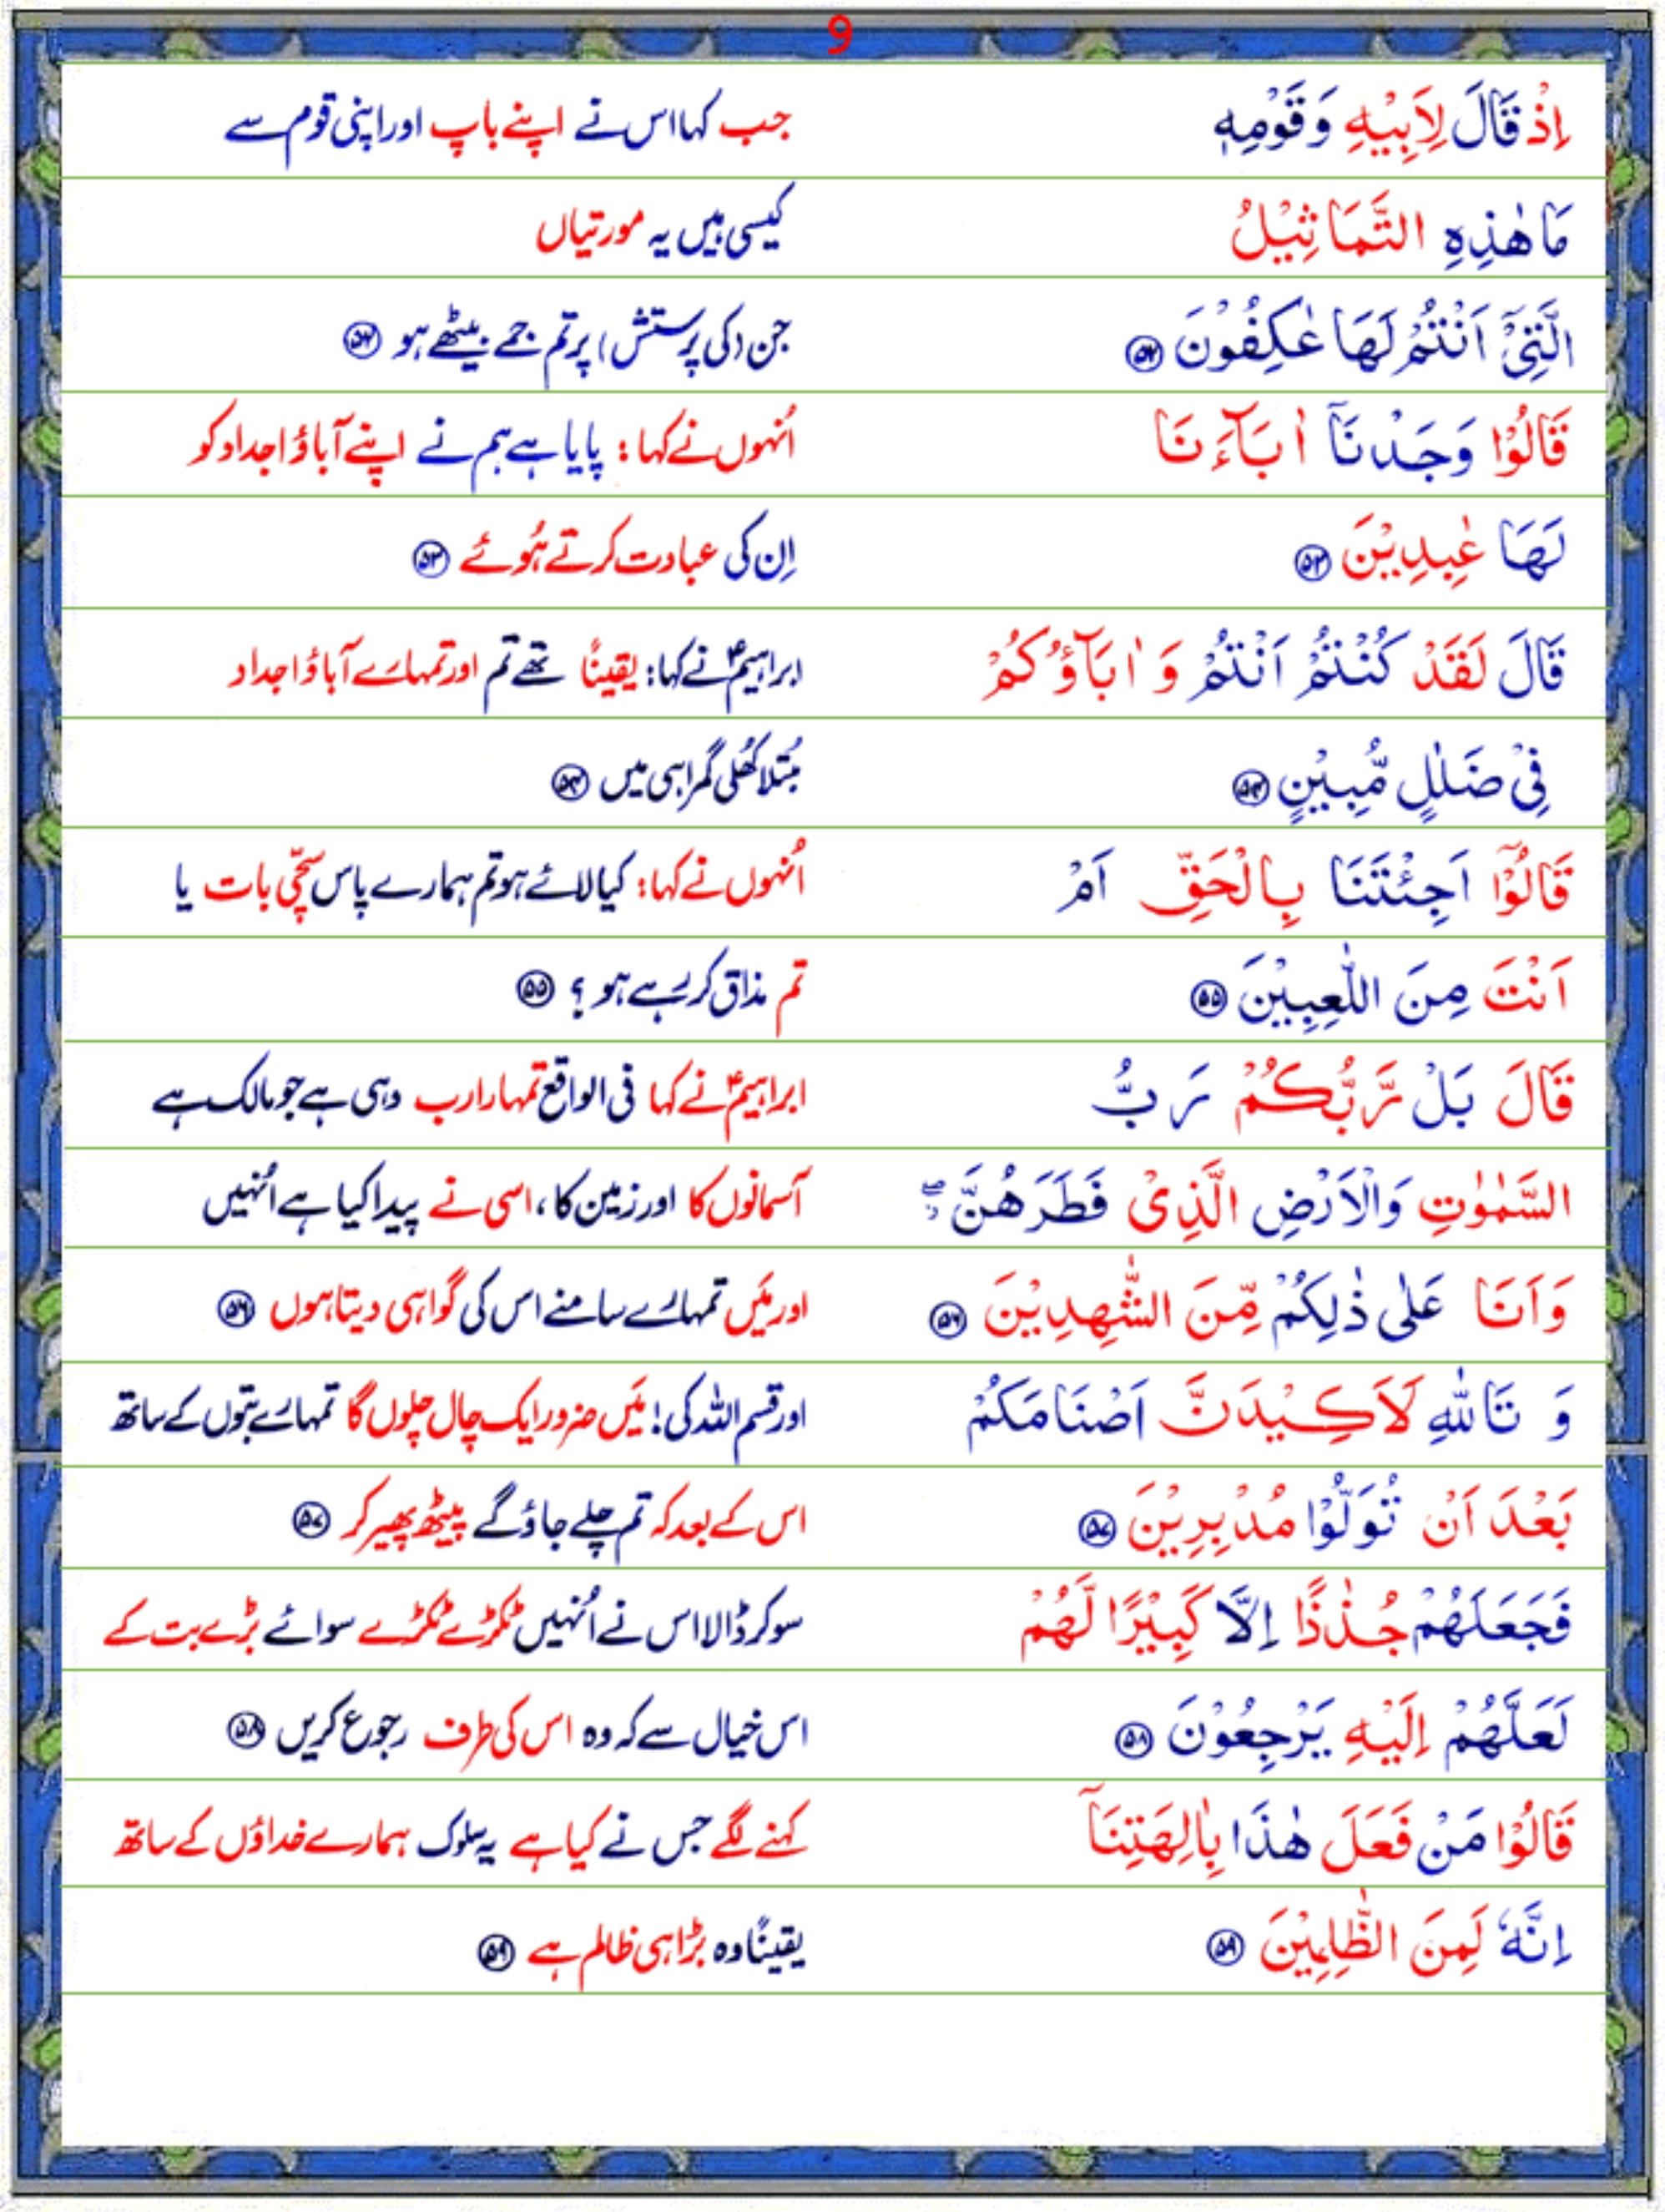 9
اِذْ قَالَ لِاَبِيْهِ وَقَوْمِهٖ جب کہا اس نے اپنے باپ اور اپنی قوم سے
مَا هٰذِهِ التَّمَاثِيْلُ کیسی ہیں یہ مورتیاں
الَّتِىْٓ اَنْتُمْ لَهَا عٰكِفُوْنَ ۵۲ جن (کی پرستش) پر تم جمے بیٹھے ہو ۵۲
قَالُوْا وَجَدْنَآ اٰبَآءَنَا اُنہوں نے کہا : پایا ہے ہم نے اپنے آباؤ اجداد کو
لَهَا عٰبِدِيْنَ ۵۳ اِن کی عبادت کرتے ہُوئے ۵۳
قَالَ لَقَدْ كُنْتُمْ اَنْتُمْ وَ اٰبَآؤُكُمْ ابراہیمؑ نے کہا: یقیناً تھے تم اور تمہارے آباؤ اجداد
فِىْ ضَلٰلٍ مُّبِيْنٍ ۵۴ مُبتلا کھُلی گمراہی میں ۵۴
قَالُوْٓا اَجِئْتَنَا بِالْحَقِّ اَمْ اُنہوں نے کہا: کیا لائے ہو تم ہمارے پاس سچّی بات یا
اَنْتَ مِنَ اللّٰعِبِيْنَ ۵۵ تم مذاق کر رہے ہو ؟ ۵۵
قَالَ بَلْ رَّبُّكُمْ رَبُّ ابراہیمؑ نے کہا فی الواقع تمہارا رب وہی ہے جو مالک ہے
السَّمٰوٰتِ وَالْاَرْضِ الَّذِىْ فَطَرَهُنَّ ۖ آسمانوں کا اور زمین کا، اسی نے پیدا کیا ہے اُنہیں
وَاَنَا عَلٰى ذٰلِكُمْ مِّنَ الشّٰهِدِيْنَ ۵۶ اور مَیں تمہارے سامنے اس کی گواہی دیتا ہوں ۵۶
وَ تَاللّٰهِ لَاَكِيْدَنَّ اَصْنَامَكُمْ اور قسم اللہ کی! مَیں ضرور ایک چال چلوں گا تمہارے بتوں کے ساتھ
بَعْدَ اَنْ تُوَلُّوْا مُدْبِرِيْنَ ۵۷ اس کے بعد کہ تم چلے جاؤ گے پیٹھ پھیر کر ۵۷
فَجَعَلَهُمْ جُذٰذًا اِلَّا كَبِيْرًا لَّهُمْ سو کر ڈالا اس نے اُنہیں ٹکڑے ٹکڑے سوائے بڑے بت کے
لَعَلَّهُمْ اِلَيْهِ يَرْجِعُوْنَ ۵۸ اس خیال سے کہ وہ اس کی طرف رجوع کریں ۵۸
قَالُوْا مَنْ فَعَلَ هٰذَا بِاٰلِهَتِنَآ کہنے لگے جس نے کیا ہے یہ سلوک ہمارے خداؤں کے ساتھ
اِنَّهٗ لَمِنَ الظّٰلِمِيْنَ ۵۹ یقیناً وہ بڑا ہی ظالم ہے ۵۹